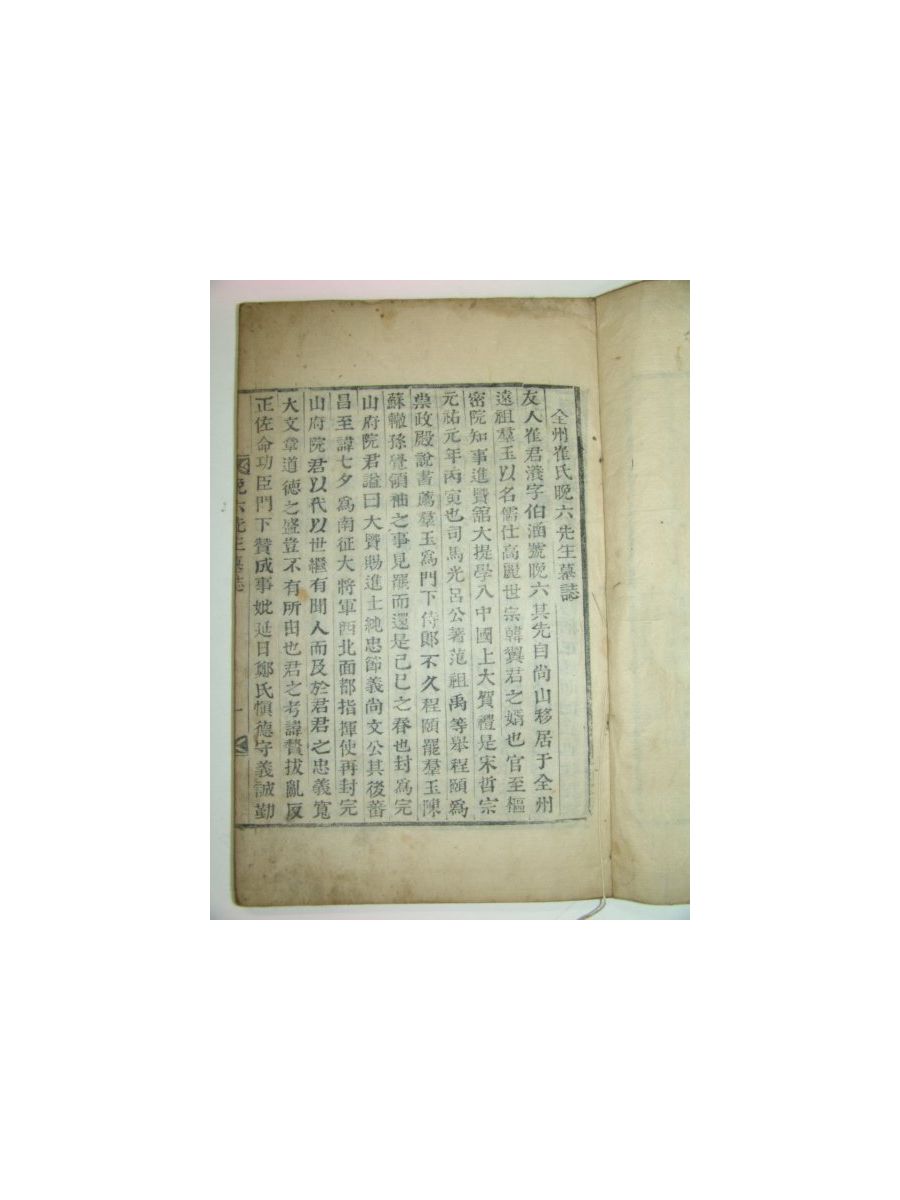 全州崔氏晩六先生墓誌
友人崔君瀁字伯涵號晩六其先自尙山移居于全州
遠祖羣玉以名儒仕高麗世宗韓翼君之婿也官至樞
密院知事進賢舘大提學入中國上大賀禮是宋哲宗
元祐元年丙寅也司馬光呂公著范祖禹等擧程頤爲
崇政殿說書薦羣玉爲門下侍郎不久程頤罷羣玉陳
蘇轍孫覺領袖之事見羆而還是己巳之春也封爲完
山府院君謚曰大賢賜進士純忠節義尙文公其後蕃
昌至諱七夕爲南征大將軍西北面都指揮使再封完
山府院君以代以世繼有聞人而及於君君之忠義寬
大文章道德之盛豈不有所由也君之考諱贇拔亂反
正佐命功臣門下贊成事妣延日鄭氏愼德守義誠勤
晩六先生墓誌 一